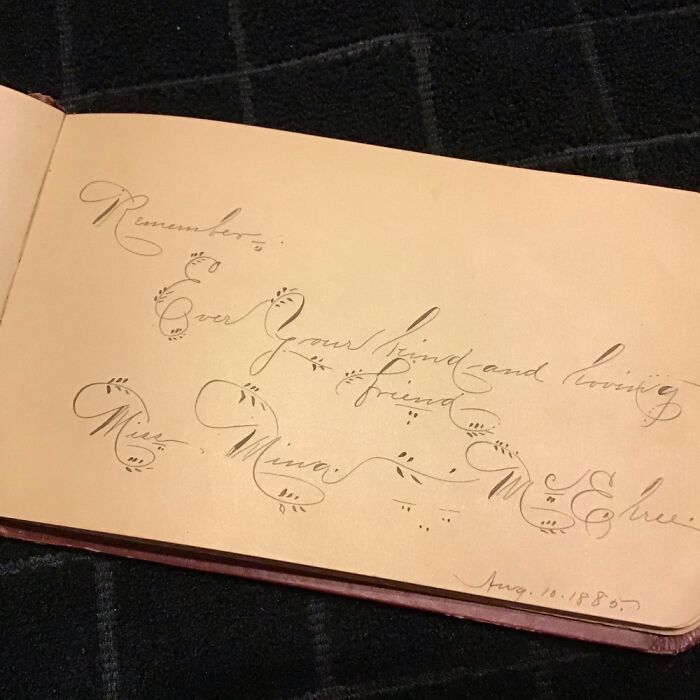 Remember
Ever Your kind and loving
friend
Miss Mina
Aug. 10. 1885.